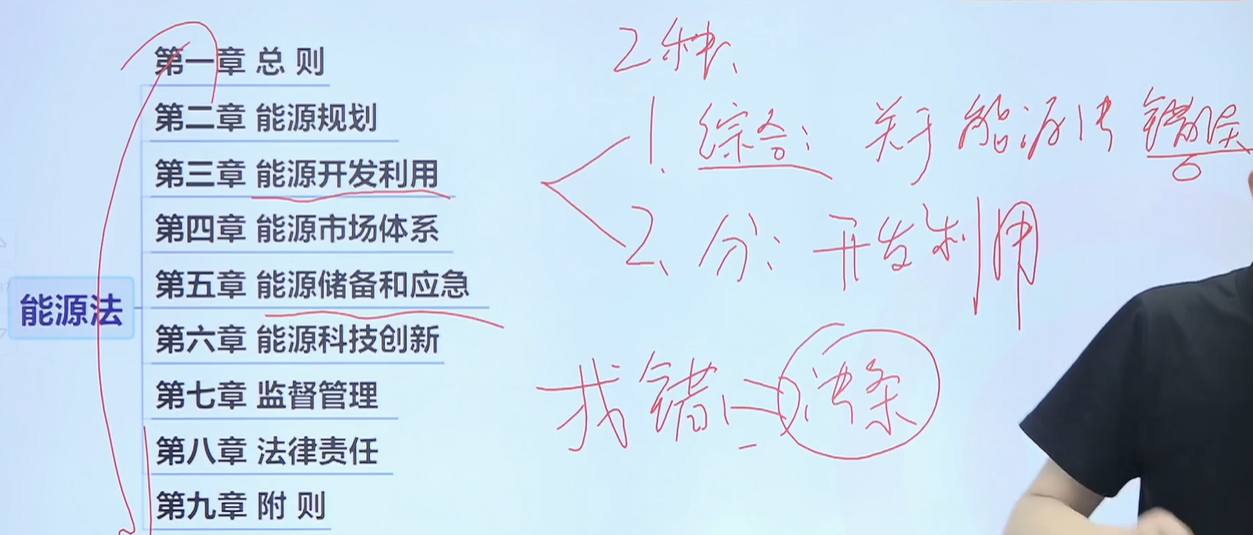 第一章 总 则
第二章 能源规划
第三章 能源开发利用
第四章 能源市场体系
第五章 能源储备和应急
能源法
第六章 能源科技创新
第七章 监督管理
第八章 法律责任
第九章 附 则
2种、
1. 综合: 关于能源法 错误
2、分: 开发利用
找错 法条